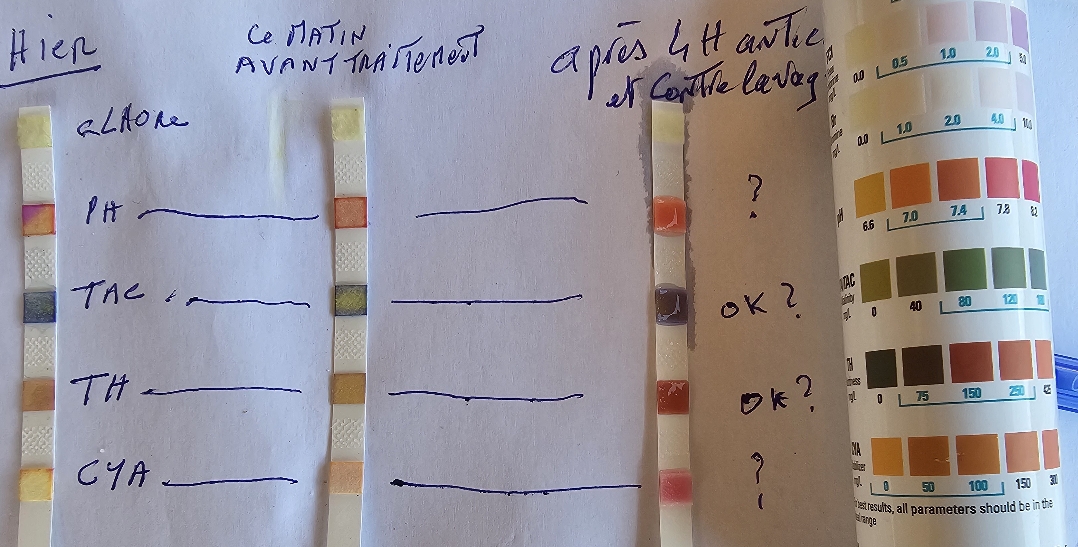 Hier
Ce MATIN
AVANT TRAITEMENT
après 4H antie
et Contre lavag
CLHORe
PH
?
TAC
OK ?
TH
OK ?
CYA
?
0.0 0.5 1.0 2.0 5.0
0.0 1.0 2.0 4.0 10.0
mg/L
pH
6.6 7.0 7.4 7.8 8.2
TAC
mg/L
0 40 80 120
TH
mg/L
0 75 150 250 425
CYA
mg/L
0 50 100 150 300
best results, all parameters should be in the
range